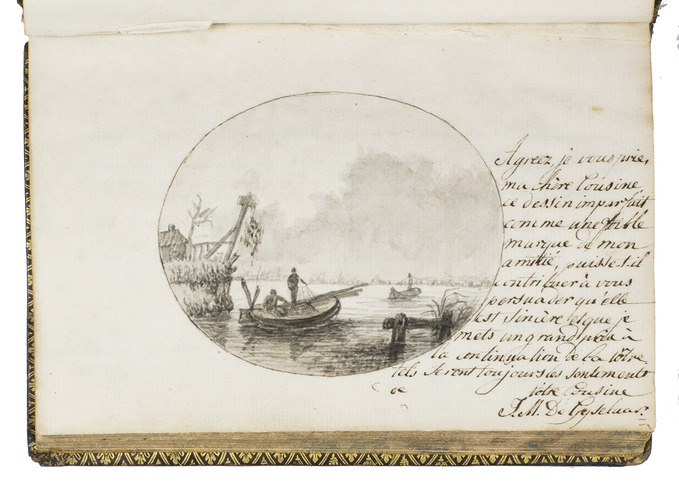 Agreez, je vous prie,
ma chère Cousine,
ce dessin imparfait
comme une foible
marque de mon
amitié, puisse-t-il
contribuer à vous
persuader qu'elle
est sincère et que je
mets un grand prix à
la continuation de la vôtre
tels seront toujours les sentiments
de votre Cousine
J.M. De Gyselaar.